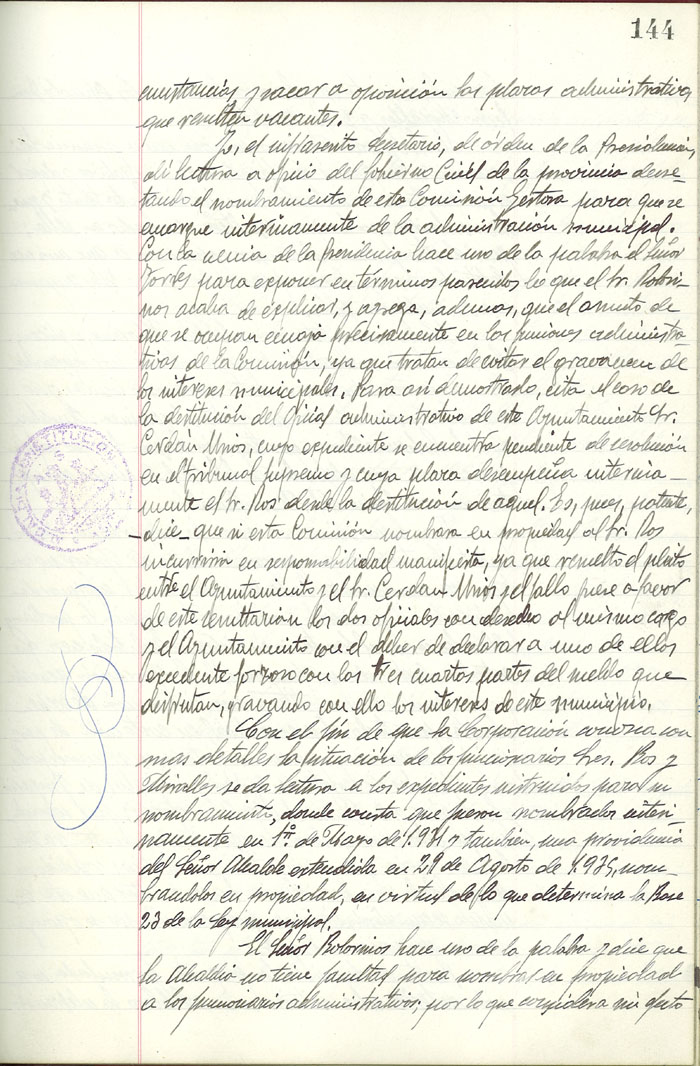 144
cunstancias, y sacar a oposición las plazas administrativas
que resulten vacantes.
Yo, el infrascrito Secretario, de órden de la Presidencia,
dí lectura a oficio del Gobierno Civil de la provincia decre-
tando el nombramiento de esta Comisión Gestora para que se
encargue interinamente de la administración municipal.
Con la venia de la Presidencia hace uso de la palabra el Señor
Torres para exponer en términos parecidos lo que el Sr. Robri-
nos acaba de explicar, y agrega, ademas, que el asunto de
que se ocupan encaja precisamente en las funciones administra-
tivas de la Comisión, ya que tratan de evitar el gravamen de
los intereses municipales. Para asi demostrarlo, cita el caso de
la destitución del Oficial administrativo de este Ayuntamiento Sr.
Cerdán Unios, cuyo expediente se encuentra pendiente de resolución
en el tribunal supremo y cuya plaza desempeña interina-
mente el Sr. Ros desde la destitución de aquel. Es, pues, patente,
-dice- que si esta Comisión nombrara en propiedad al Sr. Ros
incurriria en responsabilidad manifiesta, ya que resuelto el pleito
entre el Ayuntamiento y el Sr. Cerdan Unios y el fallo fuese a favor
de este resultarian los dos oficiales con derecho al mismo cargo
y el Ayuntamiento con el deber de declarar a uno de ellos
excedente forzoso con las tres cuartas partes del sueldo que
disfrutan, gravando con ello los intereses de este municipio.
Con el fin de que la Corporación conozca con
mas detalles la situación de los funcionarios Sres. Ros y
Miralles se da lectura a los expedientes instruidos para su
nombramiento, donde consta que fueron nombrados interi-
namente en 1º de Mayo de 1.931 y tambien, una providencia
del Señor Alcalde extendida en 29 de Agosto de 1.935, nom-
brandolos en propiedad, en virtud de lo que determina la Base
23 de la Ley municipal.
El Señor Robrinos hace uso de la palabra y dice que
la Alcaldia no tiene facultad para nombrar en propiedad
a los funcionarios administrativos, por lo que considera sin efecto